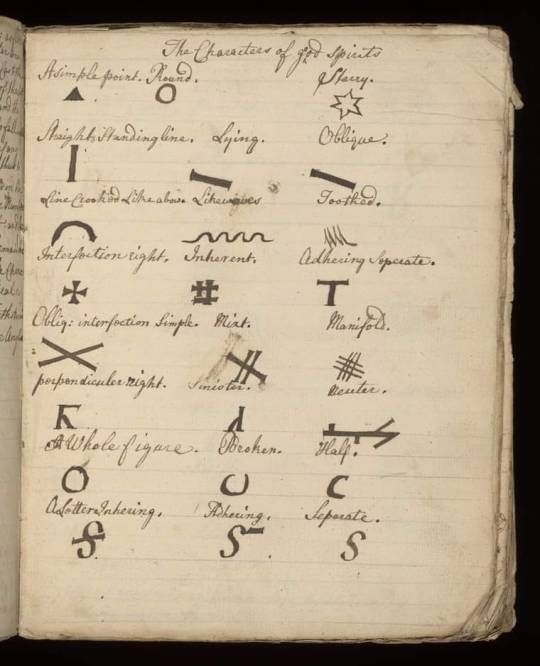 The Characters of good spirits
A simple point. Round. Starry.
Straight Standing line. Lying. Oblique.
Line Crooked Like a bow. Like waves Toothed.
Intersection right. Inherent. Adhering Seperate.
Obliq: intersection Simple. Mixt. Manifold.
perpendiculer right. Sinister. Neuter.
A Whole figure. Broken. Half.
A Letter Inhering. Adhering. Seperate.